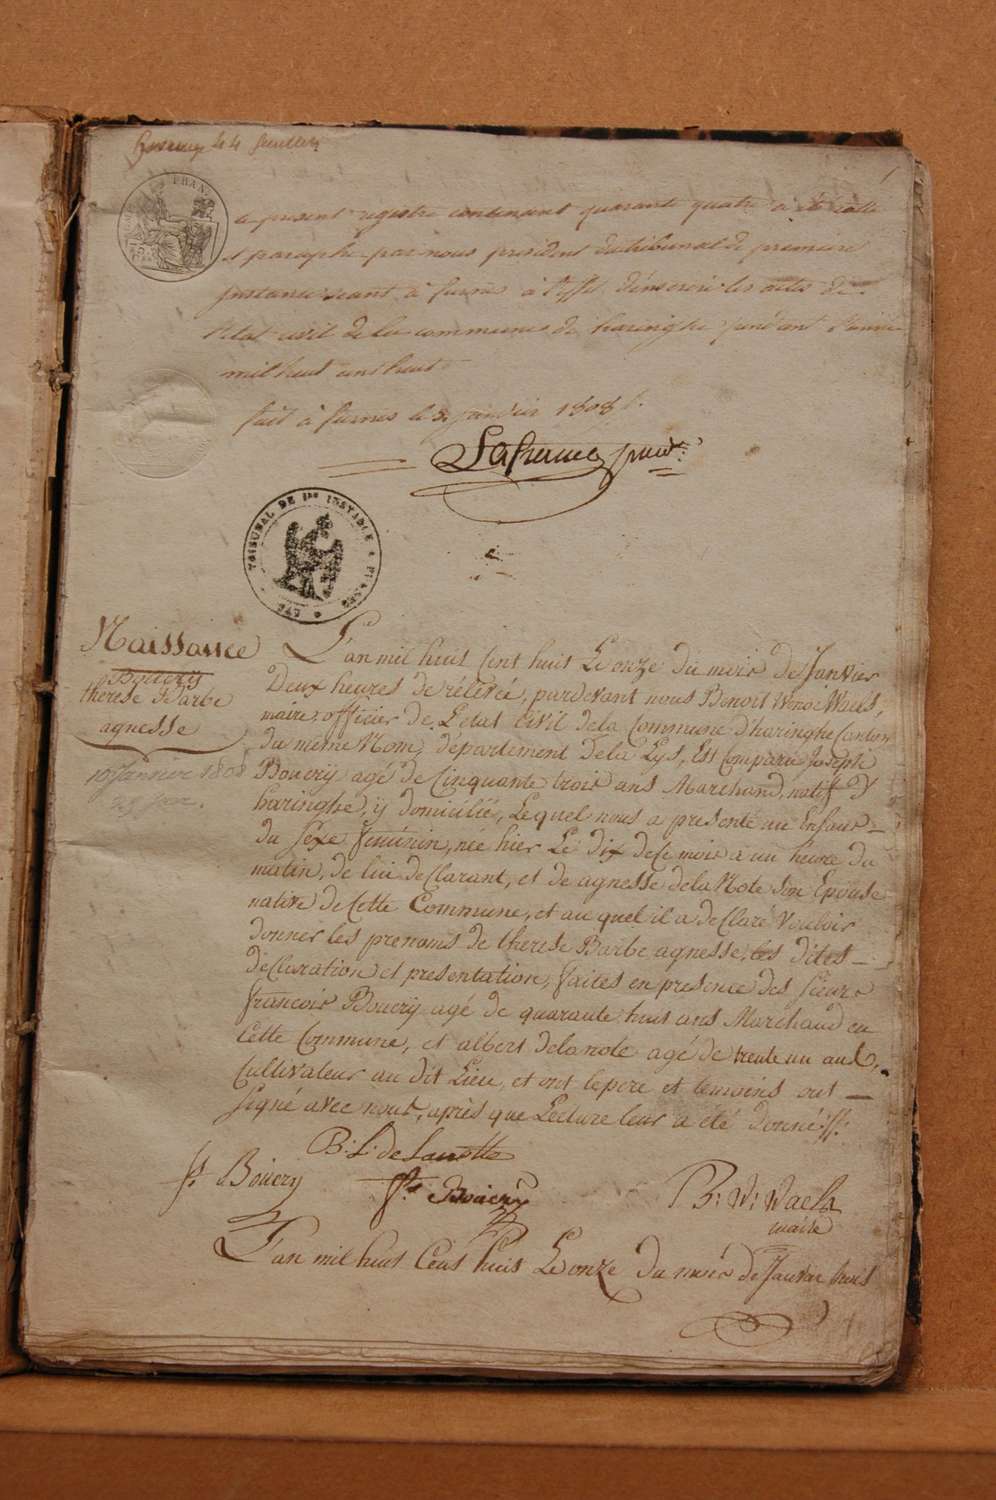 le present registre contenant quarante quatre a été cotté
et paraphé par nous president du tribunal de premiere
instance seant à furnes à l'effet d'inscrire les actes de
l'etat civil de la commune de haringhe pendant l'année
mil huit cent huit
fait à furnes le 3 janvier 1808
TRIBUNAL DE 1re INSTANCE A FURNES
LYS
Naissance
Bouery
therese Barbe
agnesse
10 Janvier 1808
L'an mil huit Cent huit Le onze du mois de Janvier
Deux heures de relevée, pardevant nous Benoit Waels,
maire, officier de L'etat Civil de la Commune d'haringhe Canton
du même Nom, département de la Lys, Est Comparu Joseph
Bouery agé de Cinquante trois ans Marchand, natif d'
haringhe, y domicilié, Lequel nous a presenté un Enfant
du Sexe feminin, née hier Le dix de Ce mois à un heure du
matin, de lui deClarant, et de agnesse de la Note Son Epouse
native de Cette Commune, et au quel il a deClaré Vouloir
donner les prenoms de therese Barbe agnesse, les dites
deClaration et presentation, faites en presence des Sieurs
francois Bouery agé de quarante huit ans Marchand en
Cette Commune, et albert delanote agé de trente un ans,
Cultivateur au dit Lieu, et ont le pere et temoins ont
Signé avec nous, après que Lecture leur a été donné
B: L: de Lanotte
f. Bouery
Bouery
B: W: Waels
maire
L'an mil huit Cent huit Le onze du mois de Janvier huit